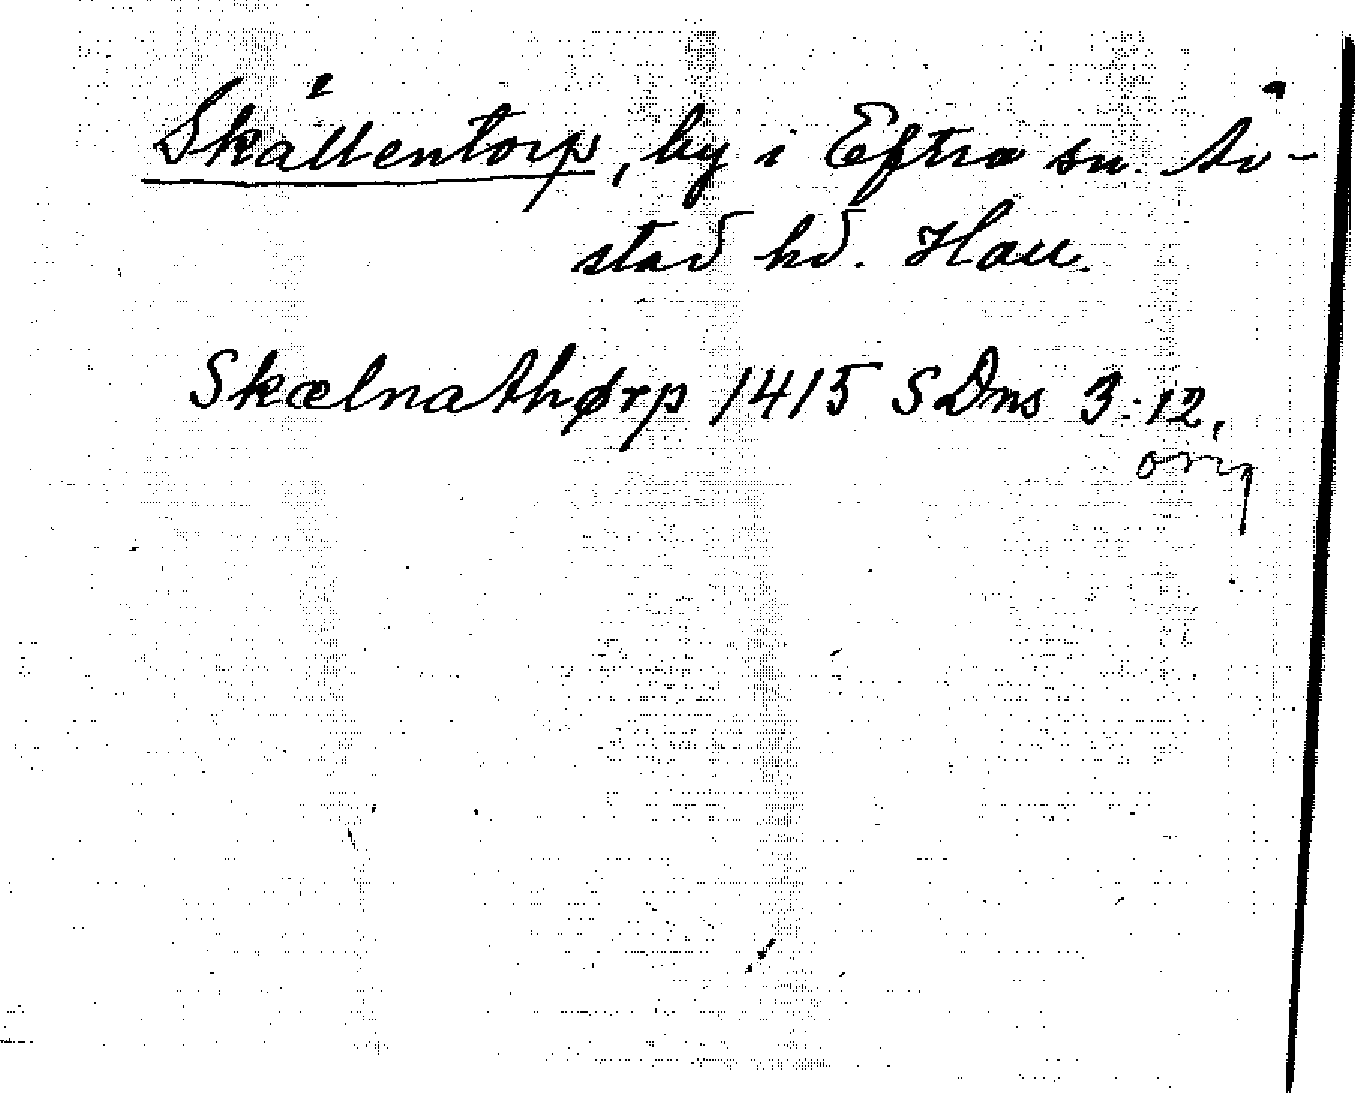 Skällentorp, by i Eftra sn. År-
stad hd. Hall.
Skælnathørp 1415 SDns 3:12,
orig